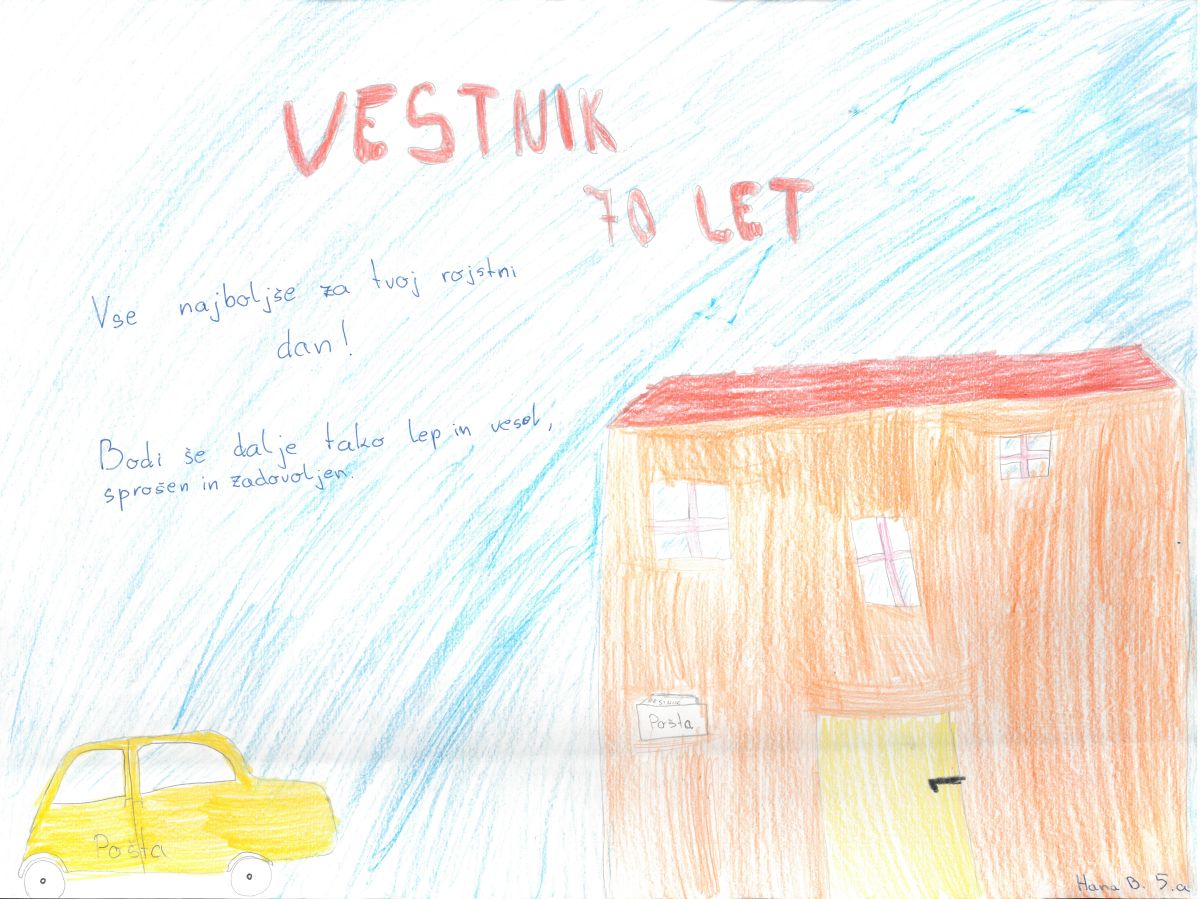 VESTNIK
70 LET
Vse najboljše za tvoj rojstni
dan!
Bodi še dalje tako lep in vesel,
sprošen in zadovoljen.
VESTNIK
Pošta
Pošta
Hana B. 5.a